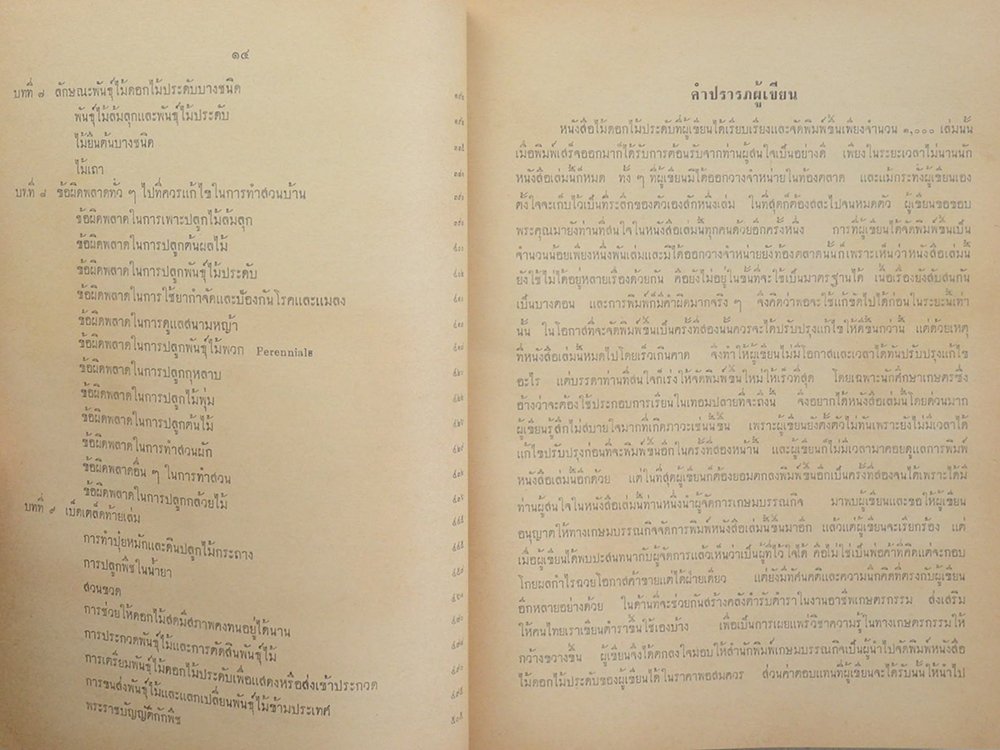 ๑๔
บทที่ ๗ ลักษณะพันธุ์ไม้ดอกไม้ประดับบางชนิด
พันธุ์ไม้ล้มลุกและพันธุ์ไม้ประดับ
ไม้ยืนต้นบางชนิด
ไม้เถา
บทที่ ๘ ข้อผิดพลาดทั่ว ๆ ไปที่ควรแก้ไขในการทำสวนบ้าน
ข้อผิดพลาดในการเพาะปลูกไม้ล้มลุก
ข้อผิดพลาดในการปลูกต้นผลไม้
ข้อผิดพลาดในการปลูกพันธุ์ไม้ประดับ
ข้อผิดพลาดในการใช้ยากำจัดและป้องกันโรคและแมลง
ข้อผิดพลาดในการดูแลสนามหญ้า
ข้อผิดพลาดในการปลูกพันธุ์ไม้พวก Perennials
ข้อผิดพลาดในการปลูกกุหลาบ
ข้อผิดพลาดในการปลูกไม้พุ่ม
ข้อผิดพลาดในการปลูกต้นไม้
ข้อผิดพลาดในการทำสวนผัก
ข้อผิดพลาดอื่น ๆ ในการทำสวน
ข้อผิดพลาดในการปลูกกล้วยไม้
บทที่ ๙ เบ็ดเตล็ดท้ายเล่ม
การทำปุ๋ยหมักและดินปลูกไม้กระถาง
การปลูกพืชในน้ำยา
สวนขวด
การช่วยให้ดอกไม้สดมีสภาพคงทนอยู่ได้นาน
การประกวดพันธุ์ไม้และการตัดสินพันธุ์ไม้
การเตรียมพันธุ์ไม้ดอกไม้ประดับเพื่อแสดงหรือส่งเข้าประกวด
การขนส่งพันธุ์ไม้และแลกเปลี่ยนพันธุ์ไม้ข้ามประเทศ
พระราชบัญญัติกักพืช
คำปรารภผู้เขียน
หนังสือไม้ดอกไม้ประดับที่ผู้เขียนได้เรียบเรียงและจัดพิมพ์ขึ้นเพียงจำนวน ๑,๐๐๐ เล่มนั้น
เมื่อพิมพ์เสร็จออกมาก็ได้รับการต้อนรับจากท่านผู้สนใจเป็นอย่างดี เพียงในระยะเวลาไม่นานนัก
หนังสือเล่มนี้ก็หมด ทั้ง ๆ ที่ผู้เขียนมิได้ออกวางจำหน่ายในท้องตลาด และแม้กระทั่งผู้เขียนเอง
ตั้งใจจะเก็บไว้เป็นที่ระลึกของตัวเองสักหนึ่งเล่ม ในที่สุดก็ต้องสละไปจนหมดตัว ผู้เขียนขอขอบ
พระคุณมายังท่านที่สนใจในหนังสือเล่มนี้ทุกคนด้วยอีกครั้งหนึ่ง การที่ผู้เขียนได้จัดพิมพ์ขึ้นเป็น
จำนวนน้อยเพียงหนึ่งพันเล่มและมิได้ออกวางจำหน่ายยังท้องตลาดนั้นก็เพราะเห็นว่าหนังสือเล่มนี้
ยังใช้ไม่ได้อยู่หลายเรื่องด้วยกัน คือยังไม่อยู่ในขั้นที่จะใช้เป็นมาตรฐานได้ เนื้อเรื่องยังสับสนกัน
เป็นบางตอน และการพิมพ์ก็มีคำผิดมากจริง ๆ จึงคิดว่าพอจะใช้แก้ขัดไปได้ก่อนในระยะนี้เท่า
นั้น ในโอกาสที่จะจัดพิมพ์ขึ้นเป็นครั้งที่สองนั้นควรจะได้ปรับปรุงแก้ไขให้ดีขึ้นกว่านี้ แต่ด้วยเหตุ
ที่หนังสือเล่มนี้หมดไปโดยเร็วเกินคาด จึงทำให้ผู้เขียนไม่มีโอกาสและเวลาได้ทันปรับปรุงแก้ไข
อะไร แต่บรรดาท่านที่สนใจก็เร่งให้จัดพิมพ์ขึ้นใหม่ให้เร็วที่สุด โดยเฉพาะนักศึกษาเกษตรซึ่ง
อ้างว่าจะต้องใช้ประกอบการเรียนในเทอมปลายที่จะถึงนี้ จึงอยากได้หนังสือเล่มนี้โดยด่วนมาก
ผู้เขียนรู้สึกไม่สบายใจมากที่เกิดภาวะเช่นนี้ขึ้น เพราะผู้เขียนยังตั้งตัวไม่ทันเพราะยังไม่มีเวลาได้
แก้ไขปรับปรุงก่อนที่จะพิมพ์ขึ้นอีกในครั้งที่สองหน้านี้ และผู้เขียนก็ไม่มีเวลามาคอยดูแลการพิมพ์
หนังสือเล่มนี้อีกด้วย แต่ในที่สุดผู้เขียนก็ต้องยอมตกลงพิมพ์ขึ้นอีกเป็นครั้งที่สองจนได้เพราะได้มี
ท่านผู้สนใจในหนังสือเล่มนี้ท่านหนึ่งนำผู้จัดการเกษมบรรณกิจ มาพบผู้เขียนและขอให้ผู้เขียน
อนุญาตให้ทางเกษมบรรณกิจจัดการพิมพ์หนังสือเล่มนี้ขึ้นมาอีก แล้วแต่ผู้เขียนจะเรียกร้อง แต่
เมื่อผู้เขียนได้พบปะสนทนากับผู้จัดการแล้วเห็นว่าเป็นผู้ที่ไว้ใจได้ คือไม่ใช่เป็นพ่อค้าที่คิดแต่จะกอบ
โกยผลกำไรฉวยโอกาสค้าขายแต่ได้ฝ่ายเดียว แต่ยังมีทัศนคติและความนึกคิดที่ตรงกับผู้เขียน
อีกหลายอย่างด้วย ในด้านที่จะช่วยกันสร้างคลังตำรับตำราในงานอาชีพเกษตรกรรม ส่งเสริม
ให้คนไทยเราเขียนตำราขึ้นใช้เองบ้าง เพื่อเป็นการเผยแพร่วิชาความรู้ในทางเกษตรกรรมให้
กว้างขวางขึ้น ผู้เขียนจึงได้ตกลงใจมอบให้สำนักพิมพ์เกษมบรรณกิจเป็นผู้นำไปจัดพิมพ์หนังสือ
ไม้ดอกไม้ประดับของผู้เขียนได้ในราคาพอสมควร ส่วนค่าตอบแทนที่ผู้เขียนจะได้รับนั้นให้นำไป